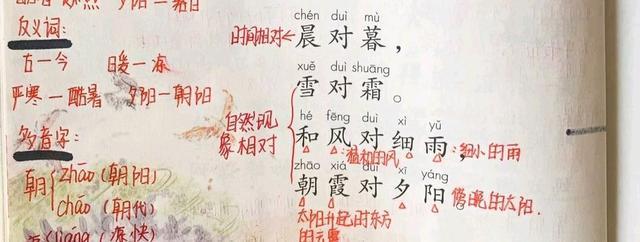 夕阳—朝日
反义词:
古—今 日暖—冻
严寒—酷暑 夕阳—朝阳
多音字:
朝
zhāo(朝阳)
cháo(朝代)
liáng(凉快)
chén duì mù
时间相对←晨对暮,
xuě duì shuāng
雪对霜。
自然现
象相对
hé fēng duì xì yǔ
和风对细雨,
:温和的风 :细小的雨
zhāo xiá duì xī yáng
朝霞对夕阳
傍晚的太阳.
太阳升起时东方
的云霞